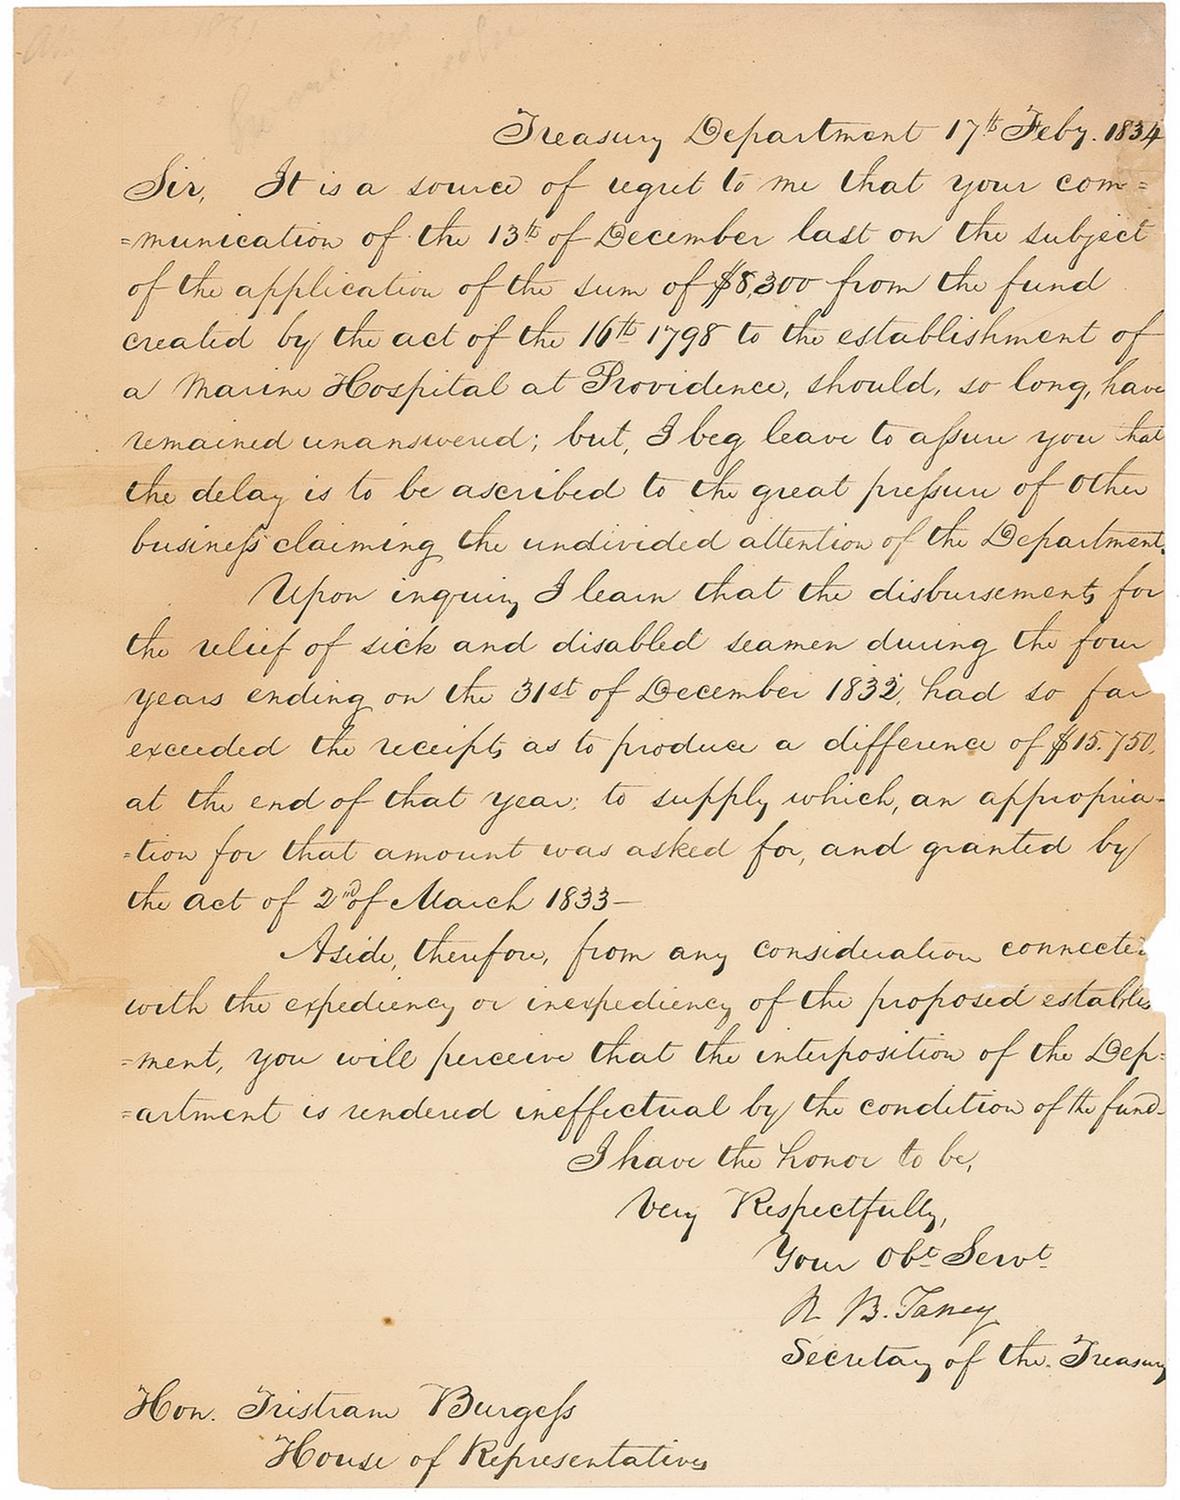 Treasury Department 17th Feby. 1834
Sir, It is a source of regret to me that your com=
=munication of the 13th of December last on the subject
of the application of the sum of $8,300 from the fund
created by the act of the 16th 1798 to the establishment of
a Marine Hospital at Providence, should, so long, have
remained unanswered; but, I beg leave to aſsure you that
the delay is to be ascribed to the great preſsure of other
busineſs claiming the undivided attention of the Department.
Upon inquiry I learn that the disbursements for
the relief of sick and disabled seamen during the four
years ending on the 31st of December 1832, had so far
exceeded the receipts as to produce a difference of $15.750,
at the end of that year: to supply which, an appropria-
=tion for that amount was asked for, and granted by
the act of 2nd of March 1833—
Aside, therefore, from any consideration connected
with the expediency or inexpediency of the proposed establis
=ment, you will perceive that the interposition of the Dep=
=artment is rendered ineffectual by the condition of the fund-
I have the honor to be,
Very Respectfully,
Your Obt. Servt.
R. B. Taney
Secretary of the Treasury
Hon. Tristram Burgeſs
House of Representatives